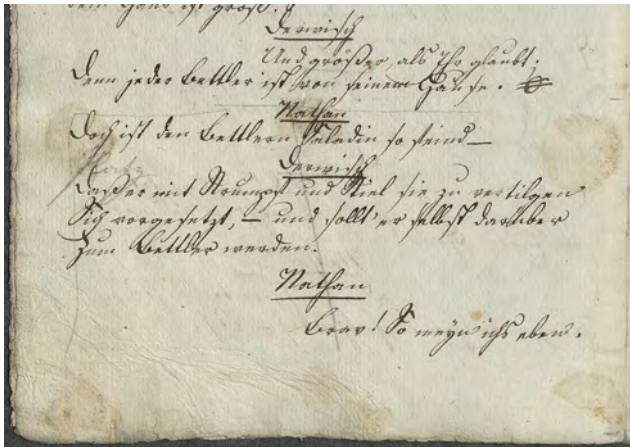 dem Haus ist groß.
Derwisch
Und größer, als Ihr glaubt;
Denn jeder Bettler ist von seinem Hause.
Nathan
Doch ist den Bettlern Saladin so feind—
Derwisch
Daß er mit Strumpf und Stiel sie zu vertilgen
Sich vorgesetzt, — und sollt' er selbst darüber
Zum Bettler werden.
Nathan
Brav! So meyn' ichs eben.